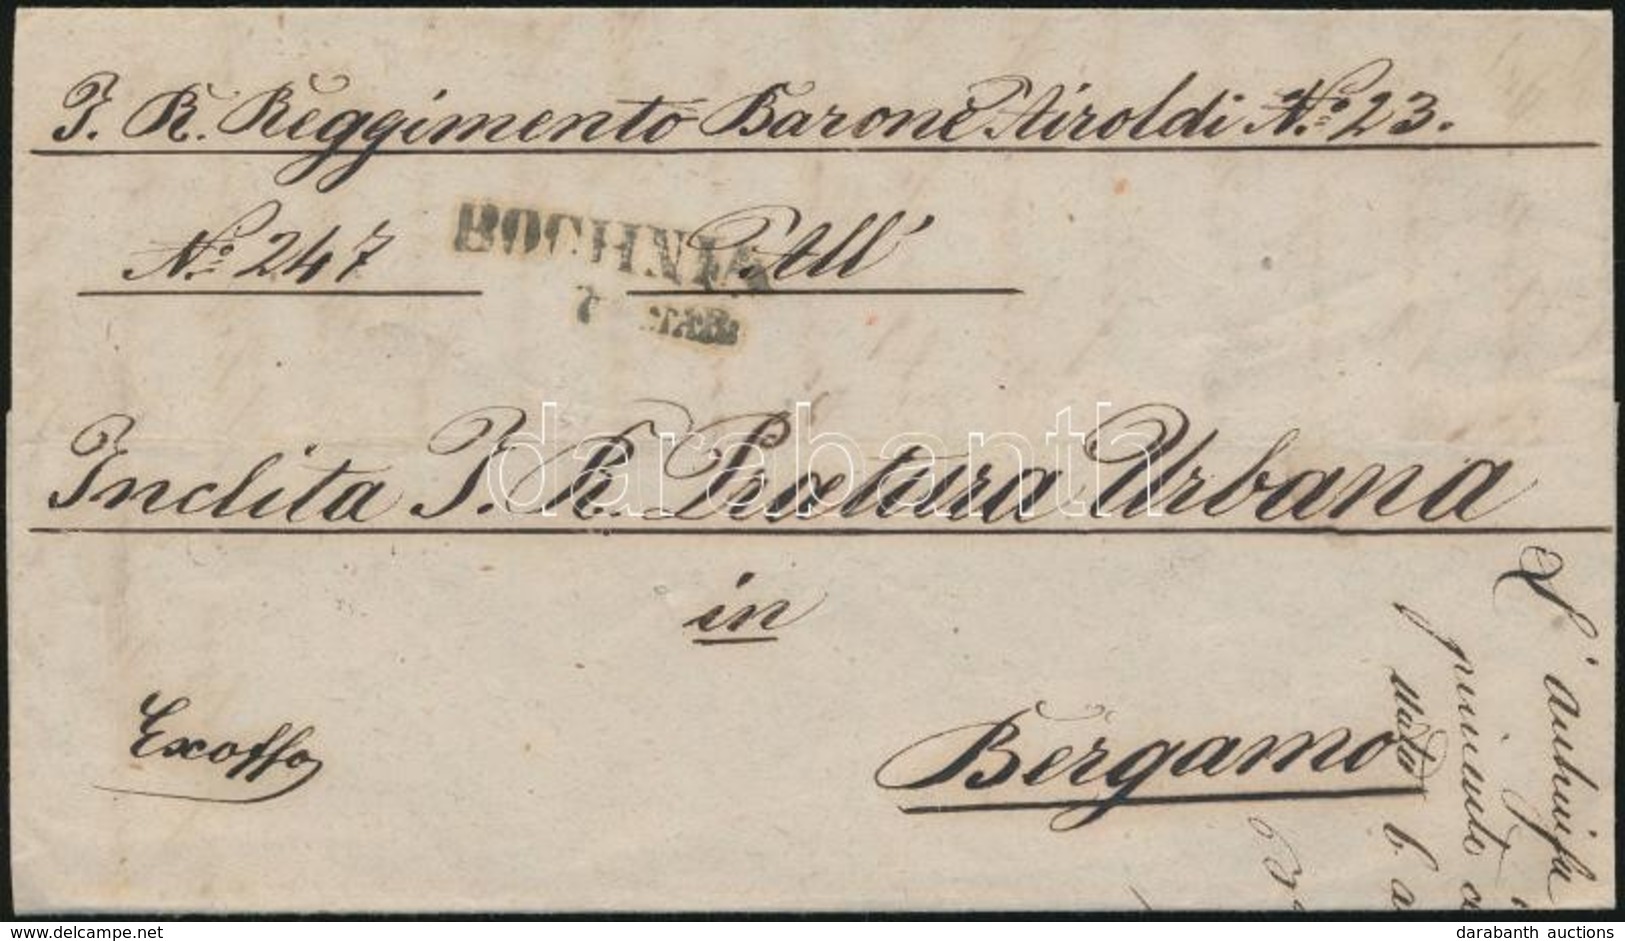 I. R. Reggimento Barone Airoldi No. 23.
No. 247
BOCHNIA
All'
7 MAR.
darabanth
Inclita I. R. Pretura Urbana
in
Exoffo
Bergamo
delcampe.net
darabanth auctions